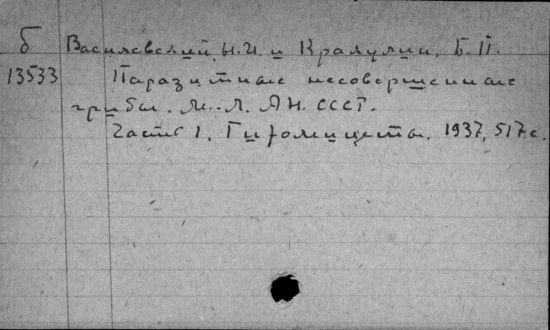 б Василевский, Н.И. и Кракулин, Б.П.
13533 Паразитные несовершенные
грибы. М.-Л. АН. СССР.
Часть 1. Гифомицеты. 1937, 517с.